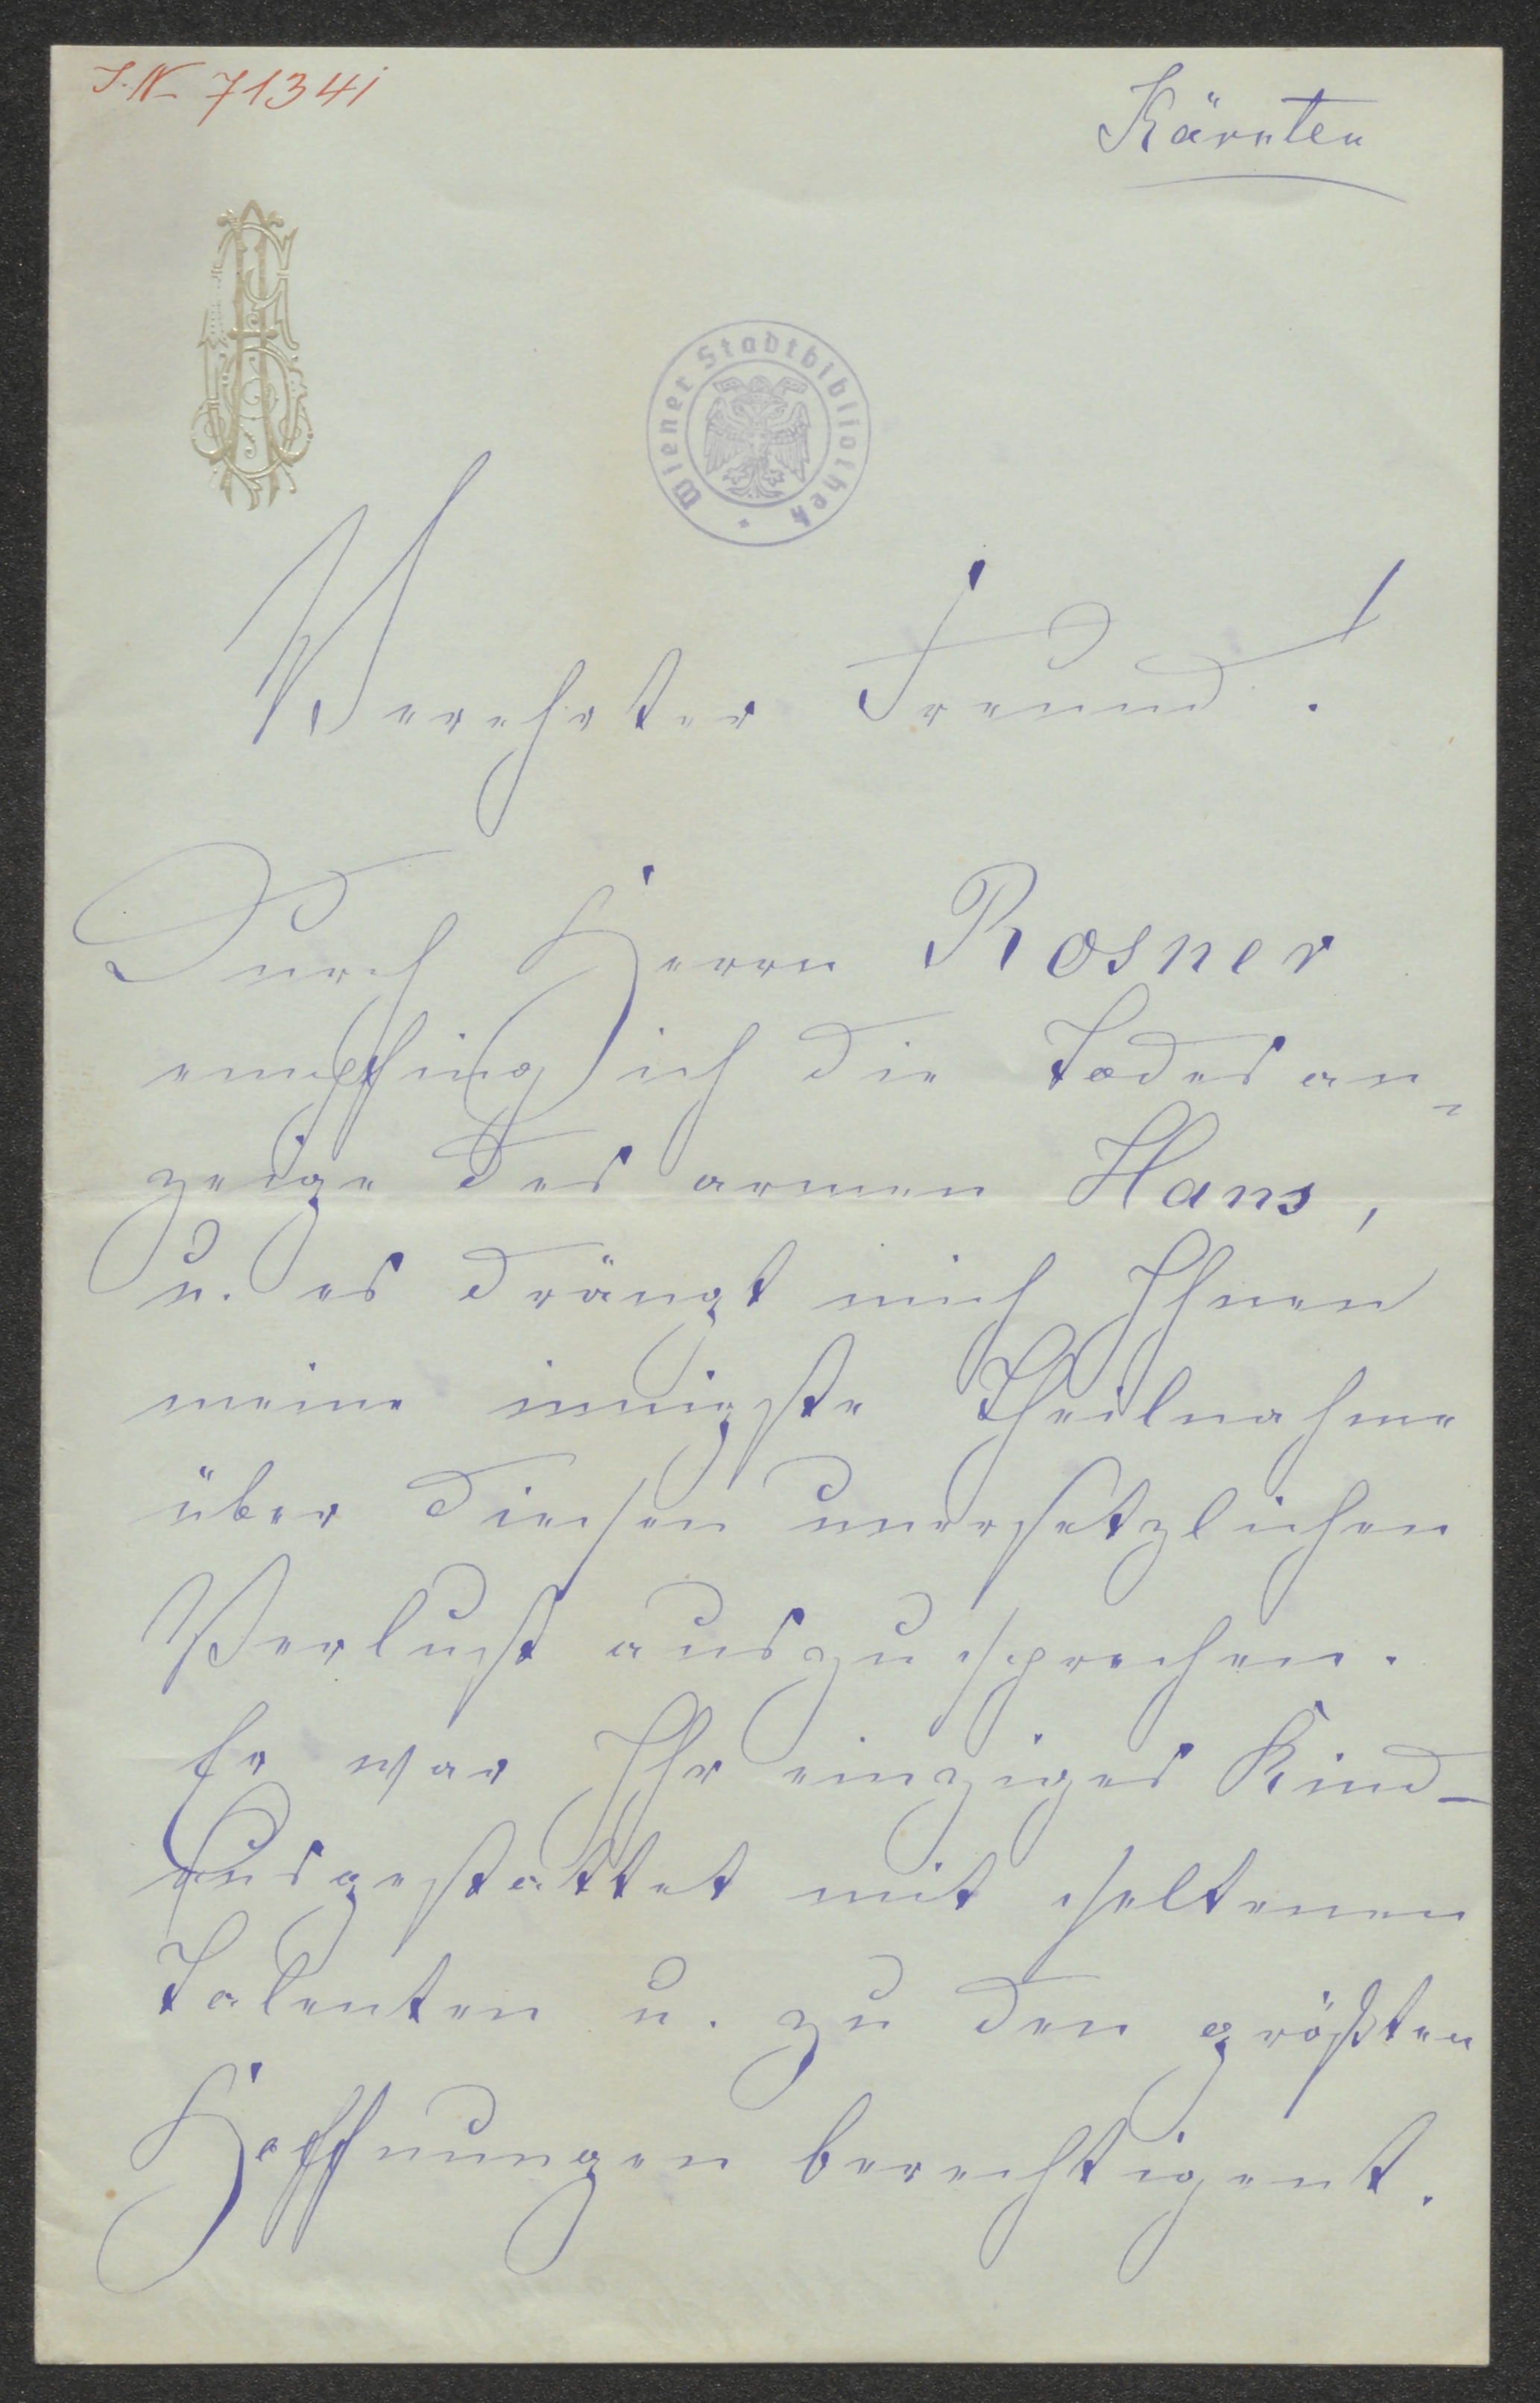 J.N. 71341
Kärnten
Wiener Stadtbibliothek
Verehrter Freund!
Durch Herrn Rosner
empfing ich die Todesan-
zeige des armen Hans,
u. es drängt mich Ihnen
meine innigste Theilnahme
über diesen unersetzlichen
Verlust auszusprechen.
Er war Ihr einziges Kind –
Ausgestattet mit seltenen
Talenten u. zu den größten
Hoffnungen berechtigent.